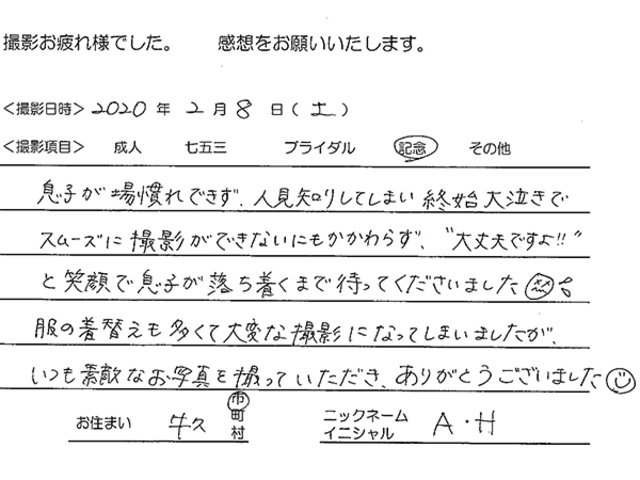 撮影お疲れ様でした。 感想をお願いいたします。
<撮影日時> 2020 年 2 月 8 日 (土)
<撮影項目> 成人 七五三 ブライダル 記念 その他
息子が場慣れできず、人見知りしてしまい終始大泣きで
スムーズに撮影ができないにもかかわらず、"大丈夫ですよ!!"
と笑顔で息子が落ち着くまで待ってくださいました
服の着替えも多くて大変な撮影になってしまいましたが、
いつも素敵なお写真を撮っていただき、ありがとうございました
お住まい 牛久 市 町 村 ニックネーム イニシャル A・H